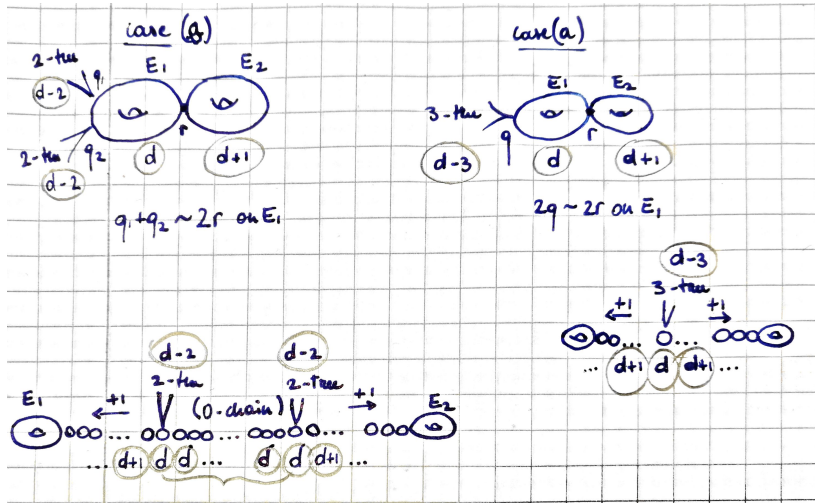 case (b)
2-tree
q₁
E₁
E₂
d-2
2-tree
q₂
r
d-2
d
d+1
q₁+q₂ ~ 2r on E₁
case (a)
E₁
E₂
3-tree
q
r
d-3
d
d+1
2q ~ 2r on E₁
d-3
3-tree
+1
+1
...
...
... d+1 d d+1 ...
d-2
d-2
2-tree
2-tree
E₁
+1
(0-chain)
+1
E₂
...
...
...
... d+1 d d ... d d d+1 ...